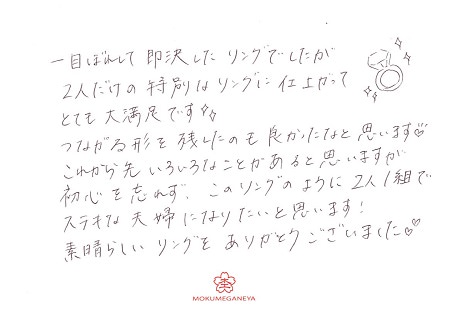 一目ぼれして即決したリングでしたが
2人だけの特別なリングに仕上がって
とても大満足です
つながる形を残したのも良かったなと思います♡
これから先いろいろなことがあると思いますが
初心を忘れず、このリングのように2人1組で
ステキな夫婦になりたいと思います!
素晴らしいリングをありがとうございました♡
MOKUMEGANEYA